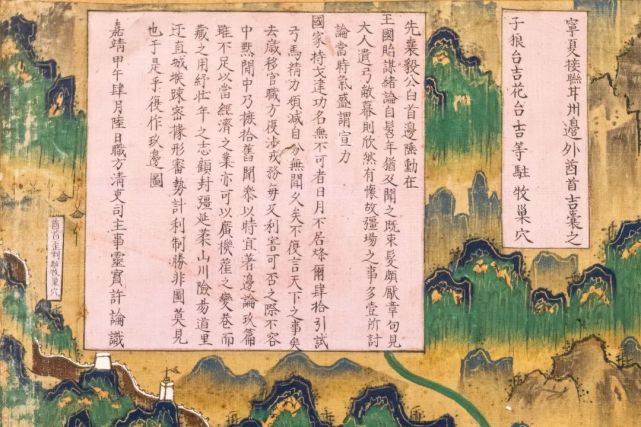 寧夏接聯甘州邊外酋首吉囊之
子狼台吉花台吉等駐牧巢穴
先襄毅公白首邊陲勳在
王國貽謀緒論自髫年猶及聞之既束髮頗厭章句見
大人遺弓敝幕則欣然有懷故疆場之事多壹所討
論當時氣盛謂宣力
國家持戈建功名無不可者日月不居爾肆拾引試
弓馬精力頓減自分無聞久矣不復言天下之事矣
去歲移官職方復涉戎務每及利害可否之際不容
中默閒中乃摭拾舊聞參以時宜著邊論玖篇
雖不足以當經濟之業亦可以廣機之變卷而
藏之用紓壯年之志顧封疆延袤山川險易道里
迂直城堠疎密據形審勢計利制勝非圖莫見
也于是乎復作玖邊圖
嘉靖甲午肆月陸日職方清吏司主事靈寶許論識
駐牧巢穴